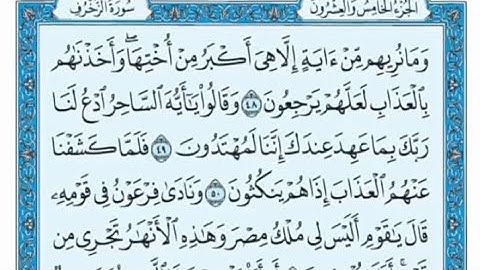 الجزء الخامس والعشرون سورة الزخرف
وَمَا نُرِيهِم مِّنْ ءَايَةٍ إِلَّا هِىَ أَكْبَرُ مِنْ أُخْتِهَا ۖ وَأَخَذْنَٰهُم
بِالْعَذَابِ لَعَلَّهُمْ يَرْجِعُونَ ٤٨ وَقَالُوا۟ يَٰٓأَيُّهَ السَّاحِرُ ادْعُ لَنَا
رَبَّكَ بِمَا عَهِدَ عِندَكَ إِنَّنَا لَمُهْتَدُونَ ٤٩ فَلَمَّا كَشَفْنَا
عَنْهُمُ الْعَذَابَ إِذَا هُمْ يَنكُثُونَ ٥٠ وَنَادَىٰ فِرْعَوْنُ فِى قَوْمِهِۦ
قَالَ يَٰقَوْمِ أَلَيْسَ لِى مُلْكُ مِصْرَ وَهَٰذِهِ الْأَنْهَٰرُ تَجْرِى مِن